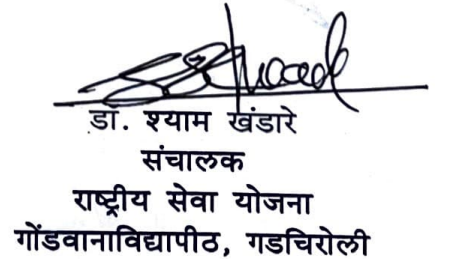 डॉ. श्याम खंडारे
संचालक
राष्ट्रीय सेवा योजना
गोंडवानाविद्यापीठ, गडचिरोली